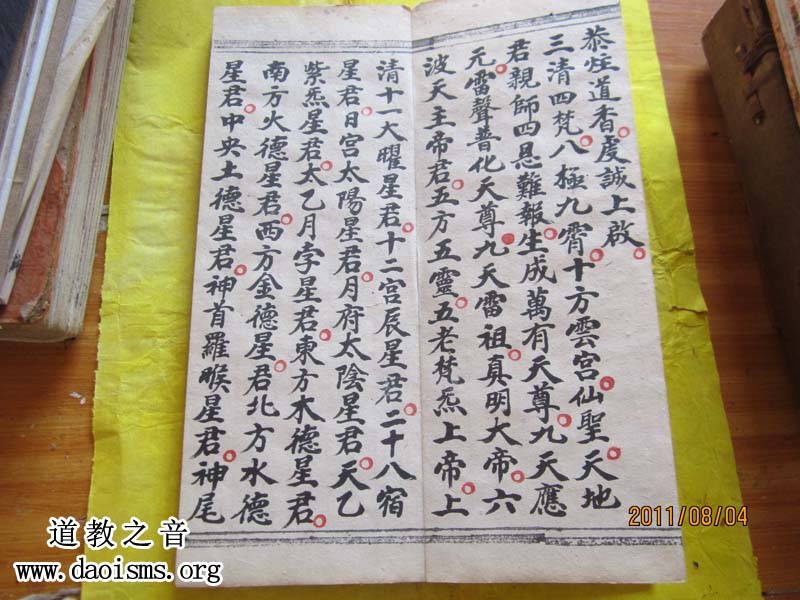 恭炷道香虔誠上啟
三清四梵八極九霄十方雲宮仙聖天地
君親師四恩難報生成萬有天尊九天應
元雷聲普化天尊九天雷祖真明大帝六
波天主帝君五方五靈五老梵炁上帝上
清十一大曜星君十二宮辰星君二十八宿
星君日宮太陽星君月府太陰星君天乙
紫炁星君太乙月孛星君東方木德星君
南方火德星君西方金德星君北方水德
星君中央土德星君神首羅睺星君神尾
2011/08/04
道教之音
www.daoisms.org